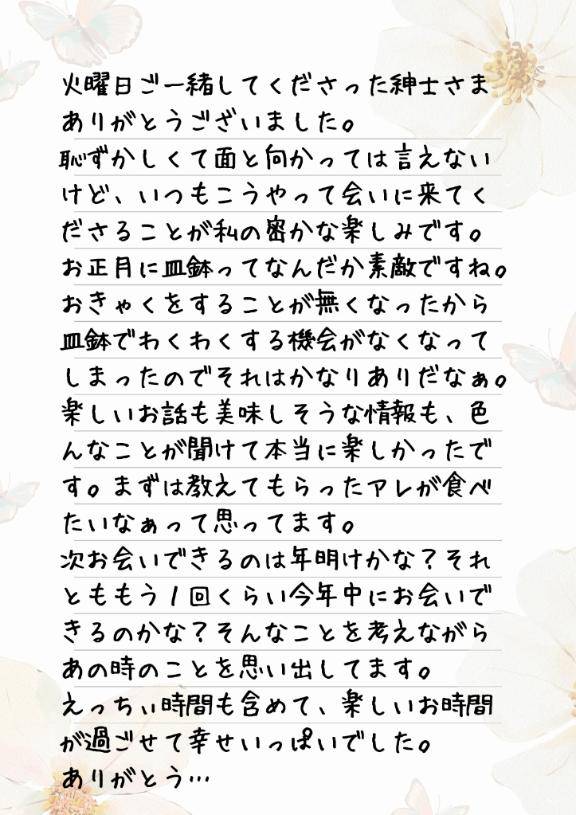 火曜日ご一緒してくださった紳士さま
ありがとうございました。
恥ずかしくて面と向かっては言えない
けど、いつもこうやって会いに来てく
ださることが私の密かな楽しみです。
お正月に皿鉢ってなんだか素敵ですね。
おきゃくをすることが無くなったから
皿鉢でわくわくする機会がなくなって
しまったのでそれはかなりありだなぁ。
楽しいお話も美味しそうな情報も、色
んなことが聞けて本当に楽しかったで
す。まずは教えてもらったアレが食べ
たいなぁって思ってます。
次お会いできるのは年明けかな？それ
とももう1回くらい今年中にお会いで
きるのかな？そんなことを考えながら
あの時のことを思い出してます。
えっちぃ時間も含めて、楽しいお時間
が過ごせて幸せいっぱいでした。
ありがとう…